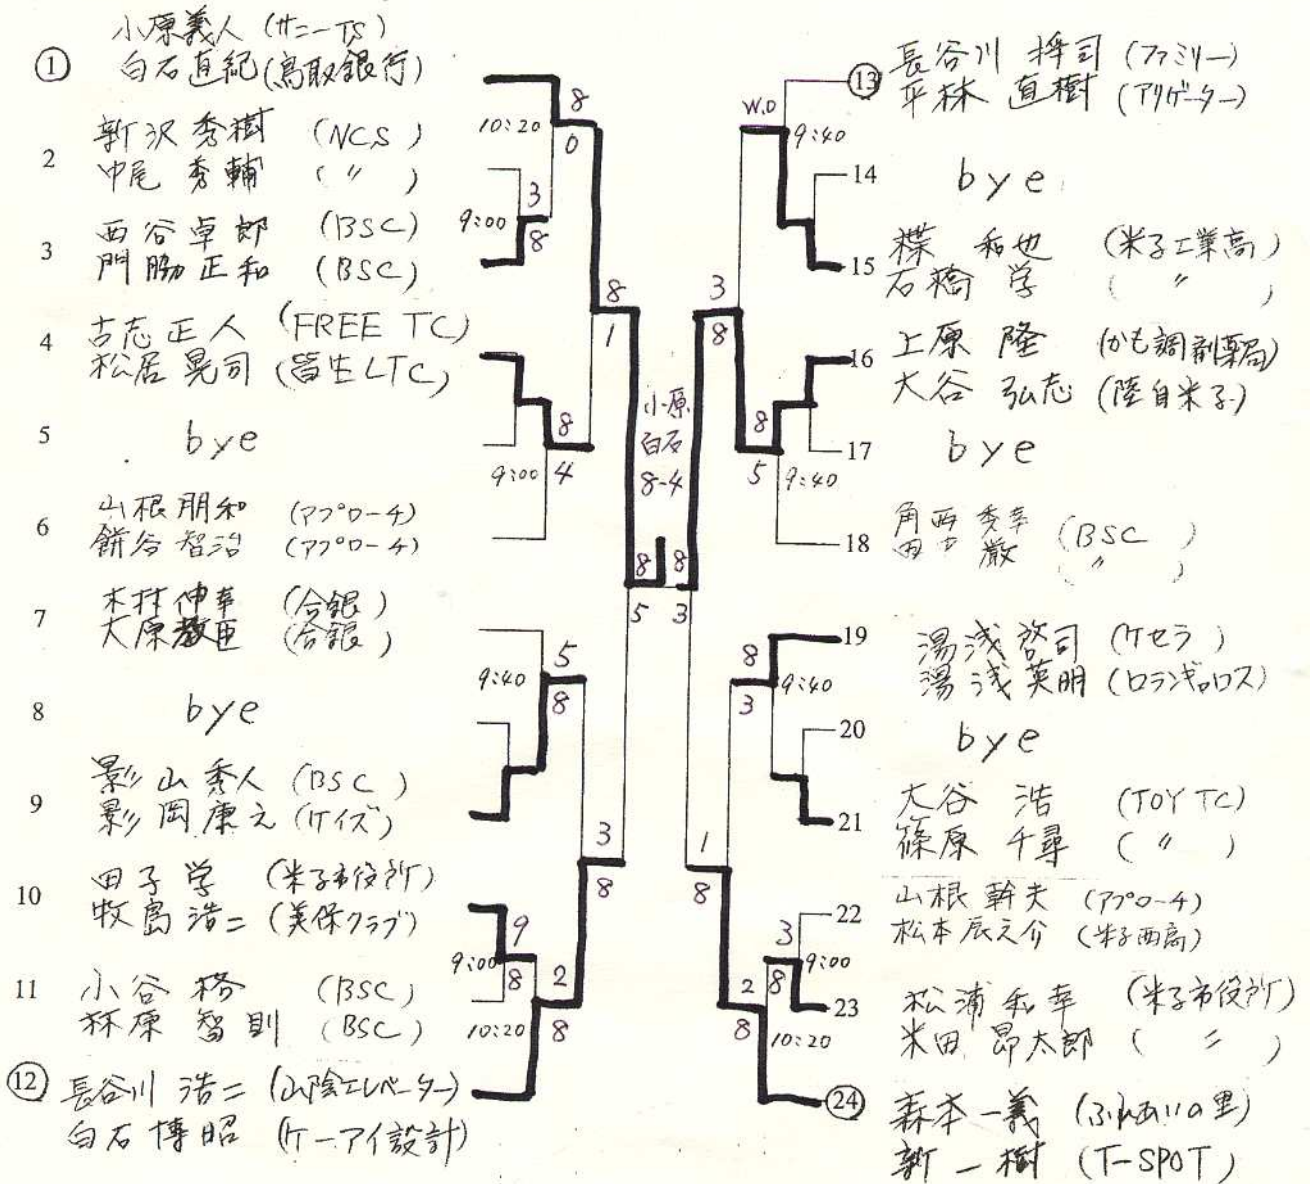 ① 小原義人 (サニーTS)
白石直紀 (鳥取銀行)
2 新沢秀樹 (NCS)
中尾秀輔 (〃)
3 西谷卓郎 (BSC)
門脇正和 (BSC)
4 古志正人 (FREE TC)
松居晃司 (皆生LTC)
5 bye
6 山根朋和 (アプローチ)
餅谷智治 (アプローチ)
7 木村伸幸 (合銀)
大原教臣 (合銀)
8 bye
9 影山秀人 (BSC)
影岡康之 (ケイズ)
10 田子学 (米子市役所)
牧島浩二 (美保クラブ)
11 小谷格 (BSC)
林原智則 (BSC)
⑫ 長谷川浩二 (山陰エレベーター)
白石博昭 (ケーアイ設計)
10:20
8
0
9:00
3
8
8
1
9:00
8
4
9:40
5
8
3
8
9:00
9
8
10:20
2
8
小原
白石
8-4
8
5
8
3
W.O
9:40
3
8
8
5
9:40
8
3
9:40
1
8
3
8
9:00
2
8
10:20
⑬ 長谷川将司 (ファミリー)
平林直樹 (アリゲーター)
14 bye
15 楪和也 (米子工業高)
石橋学 (〃)
16 上原隆 (かも調剤薬局)
大谷弘志 (陸自米子)
17 bye
18 角西秀幸 (BSC)
田中巌 (〃)
19 湯浅啓司 (ケセラ)
湯浅英明 (ロランギャロス)
20 bye
21 大谷浩 (TOY TC)
篠原千尋 (〃)
22 山根幹夫 (アプローチ)
松本辰之介 (米子西高)
23 松浦和幸 (米子市役所)
米田昂太郎 (〃)
㉔ 森本一義 (ふれあいの里)
新一樹 (T-SPOT)